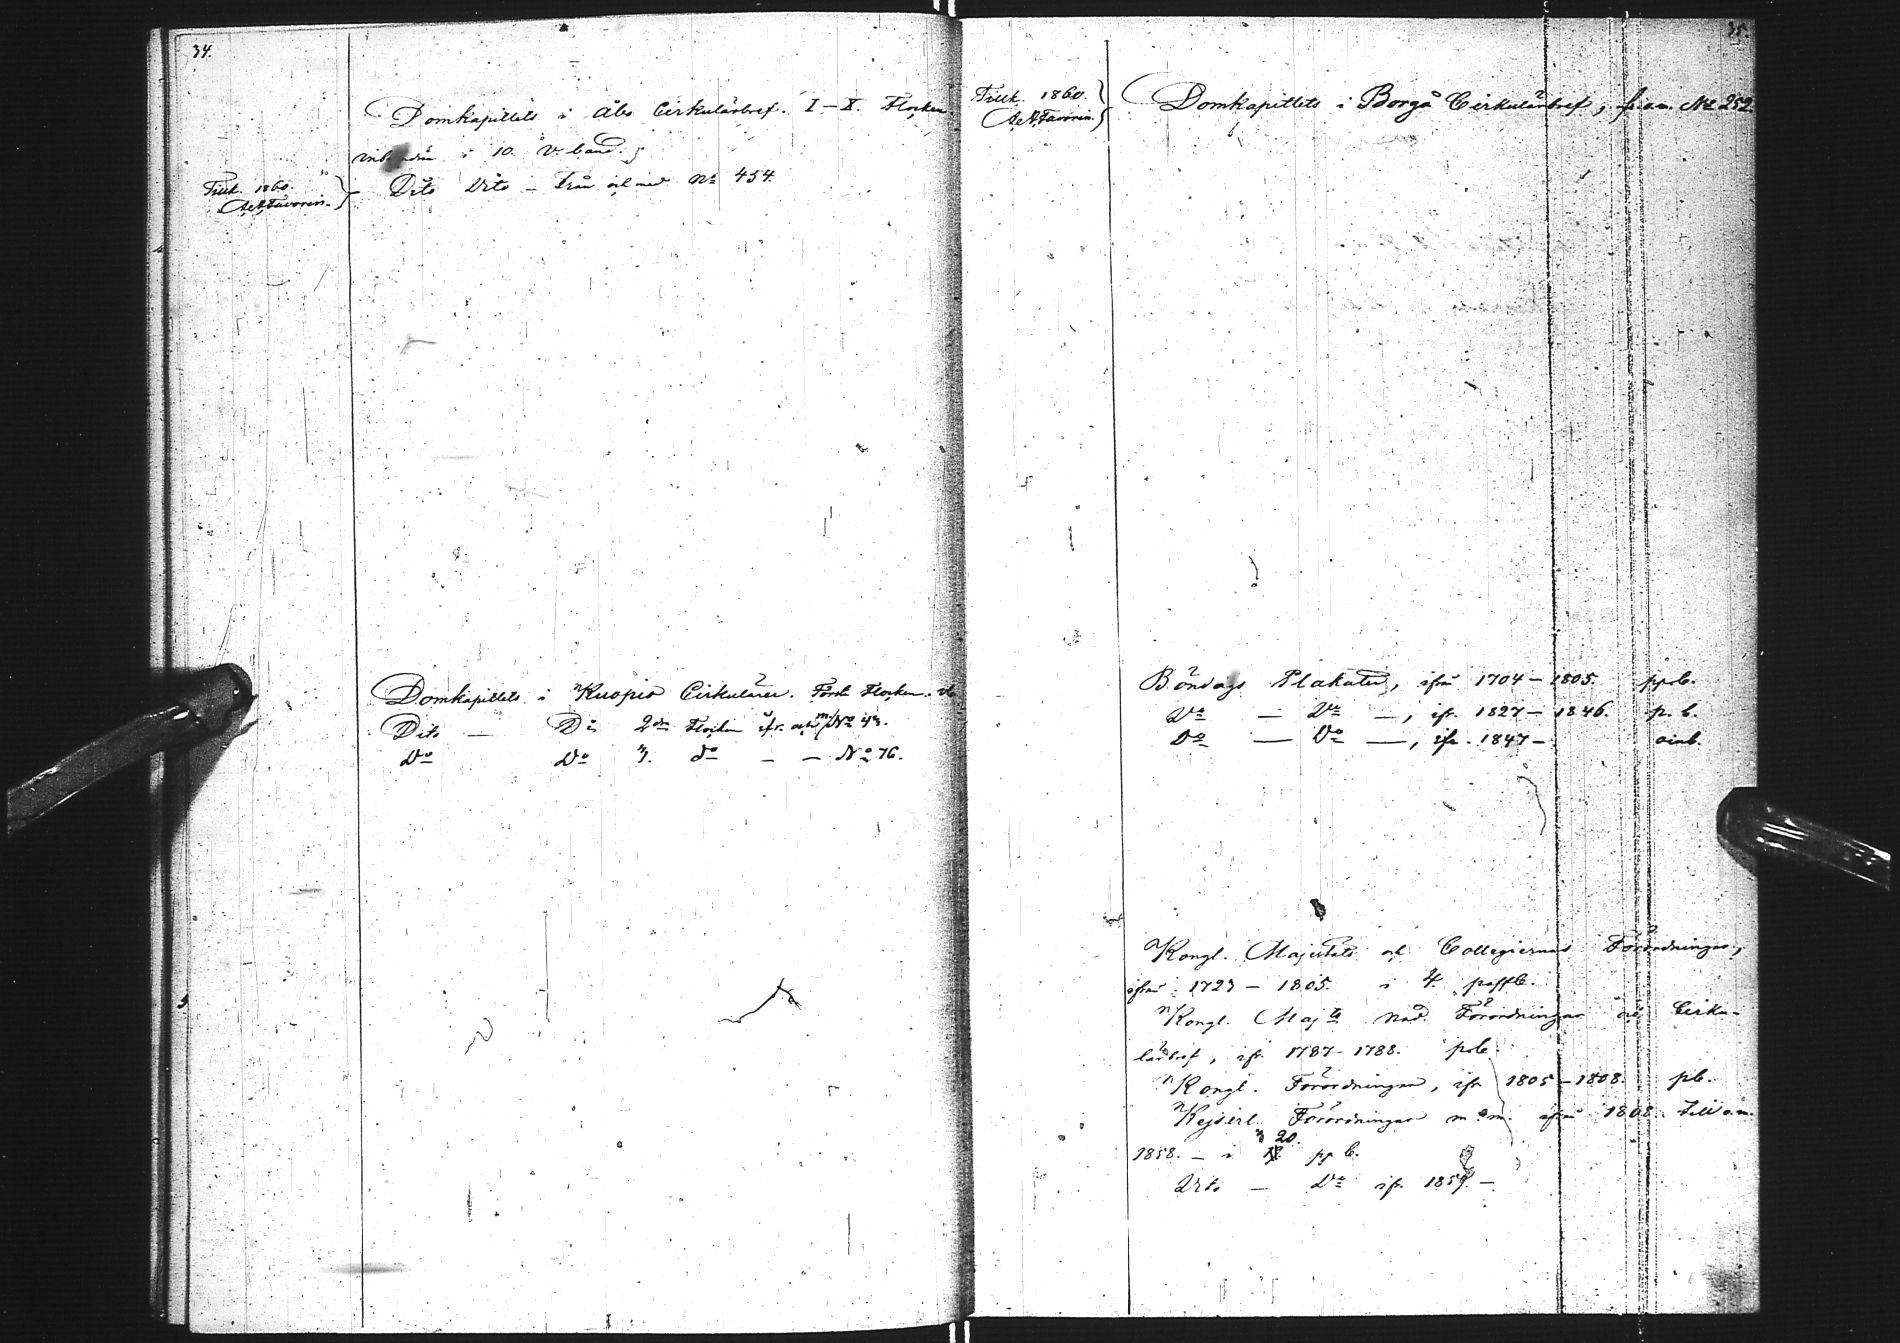 34.
Domkapitlets i Åbo Cirkulärbref. I–X. Flocken
i 10. v. band.
Tillk. 1860.
A. A. Favorin.
Dito Dito – från och med No 454.
Domkapitlets i Kuopio Cirkulärer. Första Flocken.
Dito — Do 2dra Flocken ifr. och m/ No 43.
Do Do 3. do – – No 76.
35.
Tillk. 1860.
A. A. Favorin.
Domkapitlets i Borgå Cirkulärbref, fr. o. m. No 252.
Böndags Plakater, ifrån 1704–1805. ppb.
Do — Do —, ifr. 1827–1846. p. b.
Do — Do —, ifr. 1847– oinb.
Kongl. Majestäts och Collegiernas Förordningar,
ifrån 1723–1805. i 4. pappb.
Kongl. Maj:ts Nåd. Förordningar och Cirku-
lärbref, ifr. 1787–1788. pb.
Kongl. Förordningar, ifr. 1805–1808. pb.
Kejserl. Förordningar m. m. ifrån 1808. till o. m.
1858. – i 20. pp b.
Dito — Do ifr. 1859 –